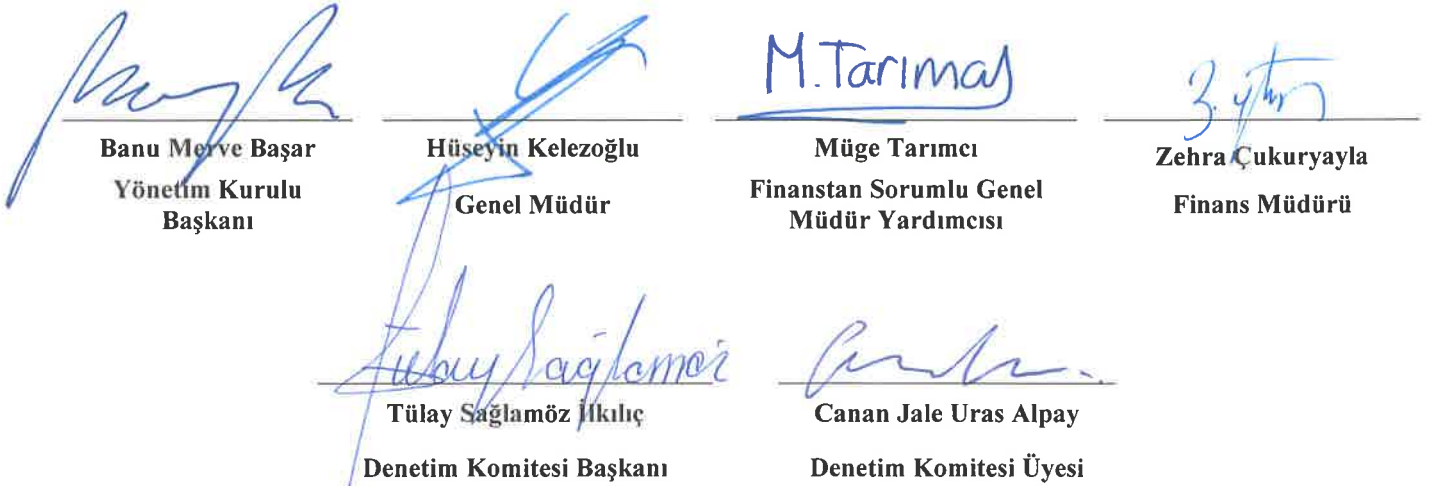 M.Tarımcı
Banu Merve Başar
Yönetim Kurulu
Başkanı
Hüseyin Kelezoğlu
Genel Müdür
Müge Tarımcı
Finanstan Sorumlu Genel
Müdür Yardımcısı
Zehra Çukuryayla
Finans Müdürü
Tülay Sağlamöz
Tülay Sağlamöz İlkılıç
Denetim Komitesi Başkanı
Canan Jale Uras Alpay
Denetim Komitesi Üyesi